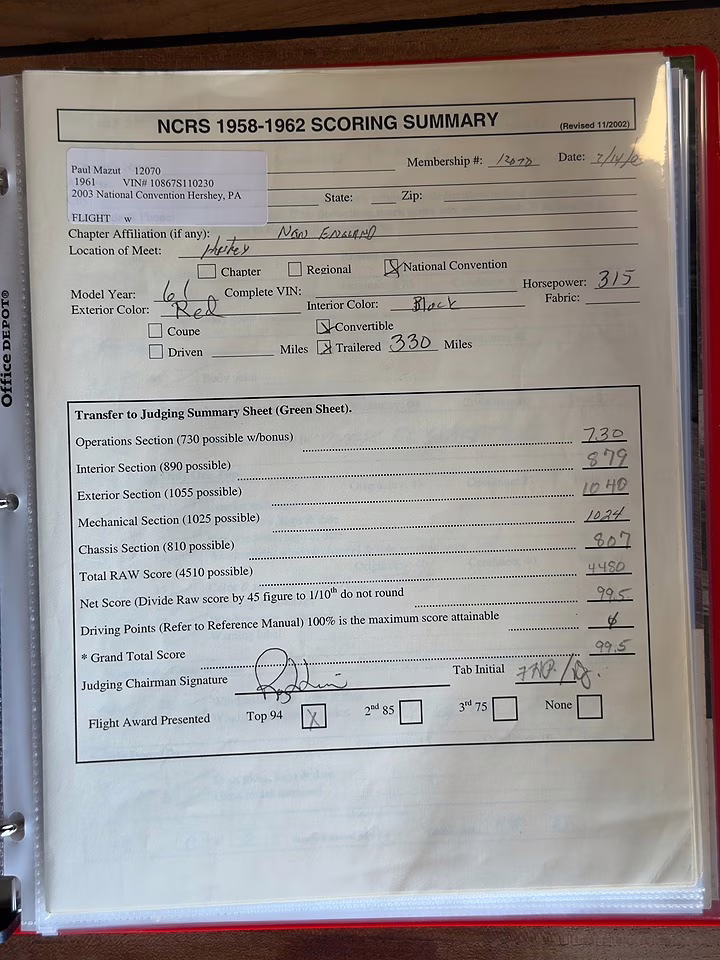 NCRS 1958-1962 SCORING SUMMARY (Revised 11/2002)
Paul Mazut 12070
1961 VIN# 10867S110230
2003 National Convention Hershey, PA
FLIGHT w
Membership #: 12070 Date: 7/14/0
State: Zip:
Chapter Affiliation (if any): NEW ENGLAND
Location of Meet: Hershey
Chapter Regional National Convention
Model Year: 61 Complete VIN: Horsepower: 315
Exterior Color: Red Interior Color: Black Fabric:
Coupe Convertible
Driven Miles Trailered 330 Miles
Office DEPOT®
Transfer to Judging Summary Sheet (Green Sheet).
Operations Section (730 possible w/bonus) 730
Interior Section (890 possible) 879
Exterior Section (1055 possible) 1040
Mechanical Section (1025 possible) 1024
Chassis Section (810 possible) 807
Total RAW Score (4510 possible) 4480
Net Score (Divide Raw score by 45 figure to 1/10th do not round 99.5
Driving Points (Refer to Reference Manual) 100% is the maximum score attainable
* Grand Total Score 99.5
Judging Chairman Signature Tab Initial
Flight Award Presented Top 94 X 2nd 85 3rd 75 None